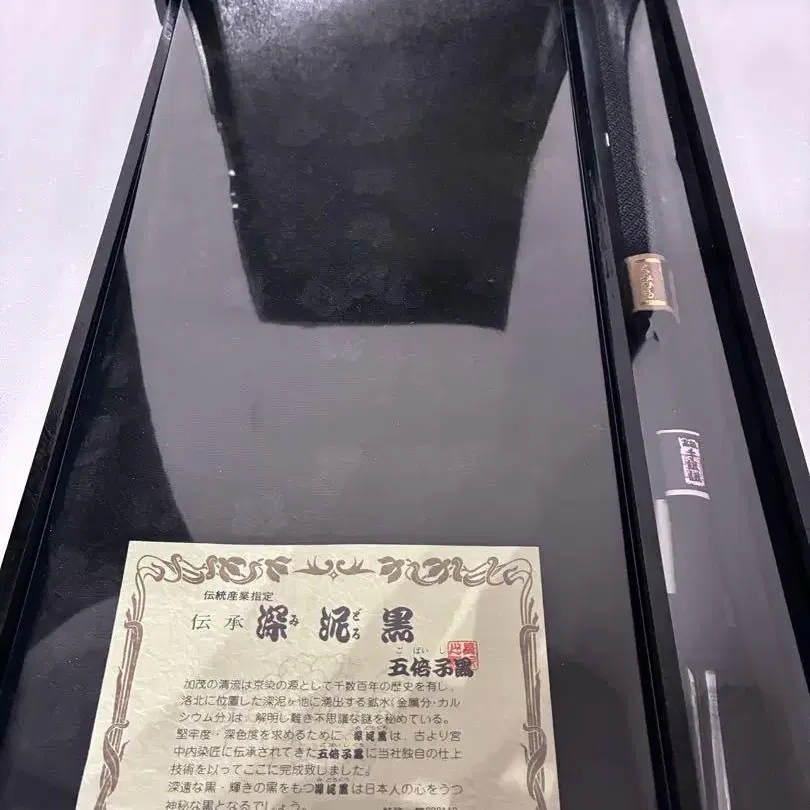 伝統産業指定
伝承 深泥黒
み どろ
ご ばい し
五倍子黒
加茂の清流は京染の源として千数百年の歴史を有し、
洛北に位置した深泥ヶ池に湧出する鉱水(金属分・カル
シウム分)は、解明し難き不思議な謎を秘めている。
堅牢度・深色度を求めるために、深泥黒は、古より宮
中内染匠に伝承されてきた五倍子黒に当社独自の仕上
技術を以ってここに完成致しました。
深遠な黒・輝きの黒をもつ深泥黒は日本人の心をうつ
神秘な黒となるでしょう。